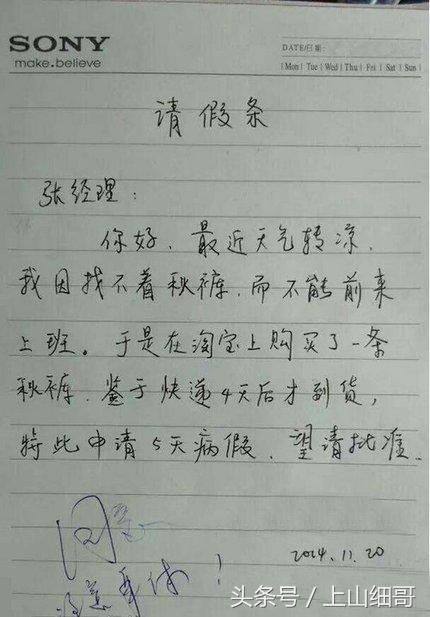 SONY
make.believe
DATE/日期:
Mon | Tue | Wed | Thu | Fri | Sat | Sun
请假条
张经理:
你好、最近天气转凉,
我因找不着秋裤,而不能前来
上班。于是在淘宝上购买了一条
秋裤、鉴于快递4天后才到货,
特此申请5天病假、望请批准.
同意
注意身体!
2014.11.20
头条号/上山细哥